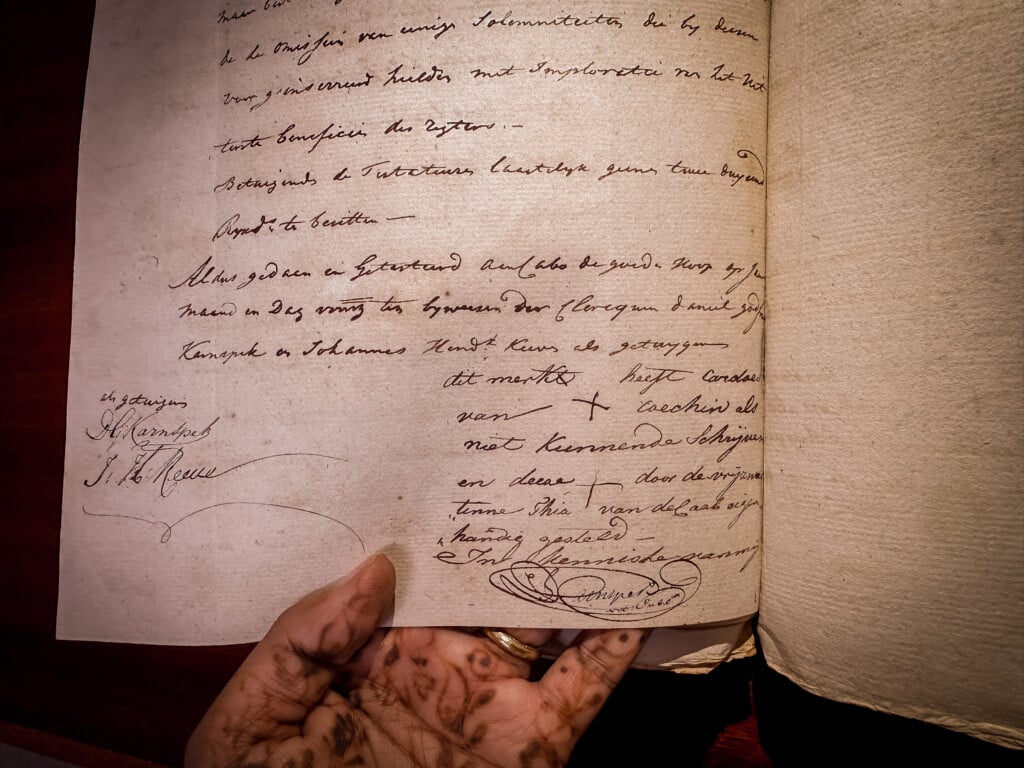 de de omissien van eenige Solemniteiten die by deesen
voor geinsereerd hielden met Imploratie van het Uit
terste beneficie des regters. —
Betuijgende de Testateuren laastelyk geene twee duysend
Ryxds te besitten —
Aldus gedaen en Getesteerd aan Cabo de goede Hoop op Jaar
maand en Dag voorsz ten bywesen der Clercquen daniel godf
Karnspek en Johannes Hendk als getuygen
dit merkt heeft Cardoes
van + coechin als
niet Kunnende Schrijven
en deese + door de vrijswar
tinne Thia van de Caab eigen
handig gesteld —
In kennisse van mij
als getuigen
D G Karnspek
J: H: